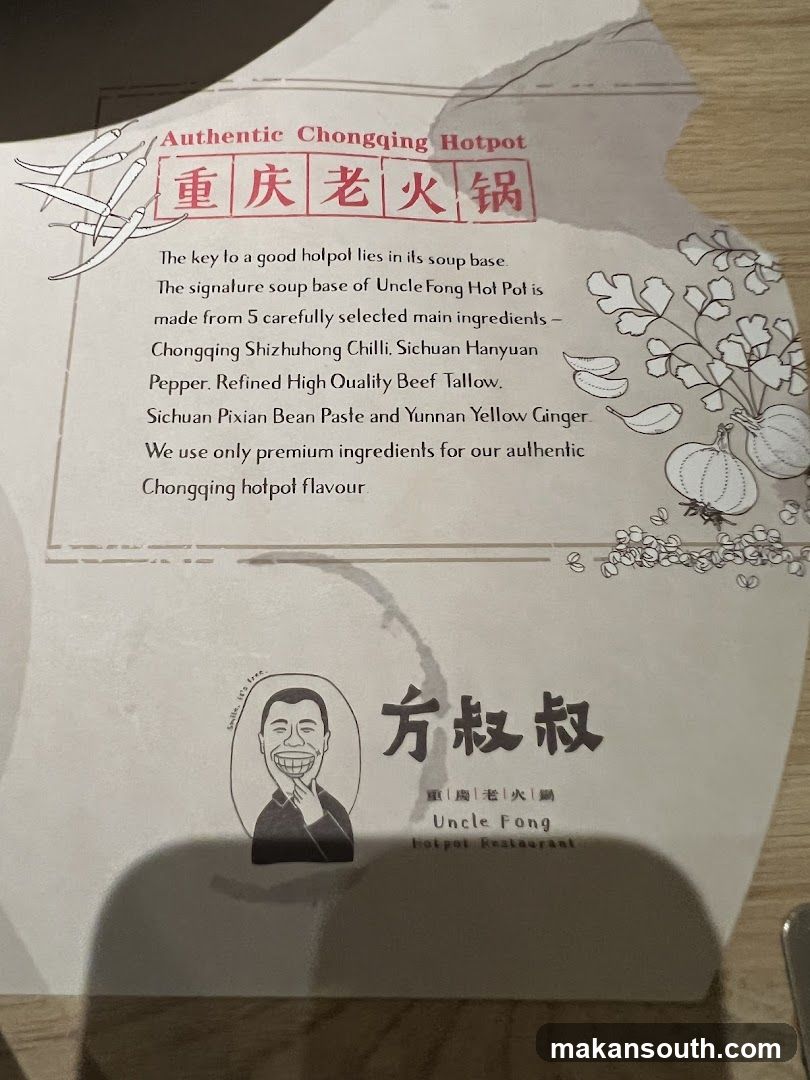 Authentic Chongqing Hotpot
重庆老火锅
The key to a good hotpot lies in its soup base.
The signature soup base of Uncle Fong Hot Pot is
made from 5 carefully selected main ingredients –
Chongqing Shizhuhong Chilli, Sichuan Hanyuan
Pepper, Refined High Quality Beef Tallow,
Sichuan Pixian Bean Paste and Yunnan Yellow Ginger.
We use only premium ingredients for our authentic
Chongqing hotpot flavour.
smile, it's free.
方叔叔
重|慶|老|火|鍋
Uncle Fong
Hotpot Restaurant
makansouth.com